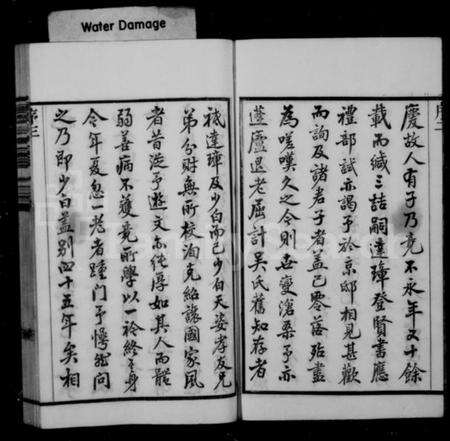 Water Damage
慶故人有子乃竟不永年又十餘
載而緘三詰嗣達璋登賢書應
禮部試亦謁予於京邸相見甚歡
而詢及諸君子者蓋已零落殆盡
為嗟嘆久之今則世變滄桑予亦
蘧廬退老屈計吳氏舊知存者
祗達璋及少白而已少白天姿孝友兄
弟分財無所校洵克紹讓國家風
者昔從予遊文亦純厚如其人而體
弱善病不獲竟所學以一衿終其身
今年夏忽一老者踵門予愕然問
之乃即少白蓋別四十五年矣相
序三